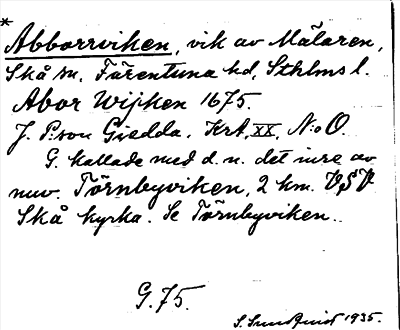 *
Abborrviken, vik av Mälaren,
Skå sn, Färentuna hd, Sthlms l.
Abor Wijken 1675.
J. P:son Giedda. Krt. XX. N:o O
G. kallade med d. n. det inre av
nuv. Törnbyviken, 2 km. VSV
Skå kyrka. Se Törnbyviken.
G.75.
S. Sundquist 1935.